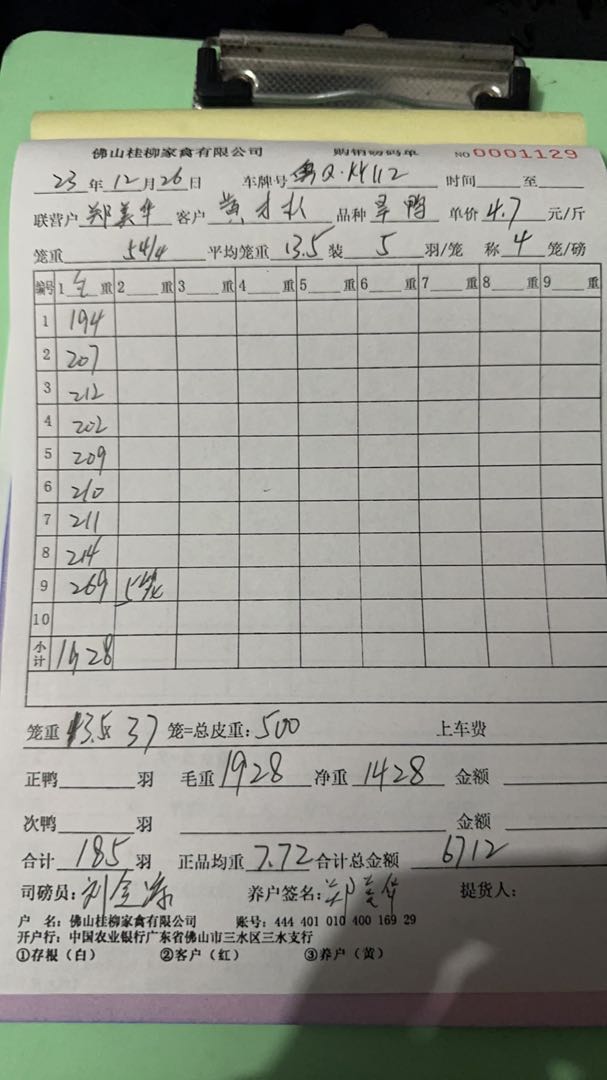 佛山桂柳家禽有限公司 购销磅码单 NO 0001129
23年12月26日 车牌号 粤Q·XH112 时间 至
联营户 郑美华 客户 黄才 品种 旱鸭 单价 4.7 元/斤
笼重 54/4 平均笼重 13.5 装 5 羽/笼 称 4 笼/磅
编号 1 毛 重 2 重 3 重 4 重 5 重 6 重 7 重 8 重 9 重
1 194
2 207
3 212
4 202
5 209
6 210
7 211
8 214
9 269 5笼
10
小计 1928
笼重 13.5× 37 笼=总皮重: 500 上车费
正鸭 羽 毛重 1928 净重 1428 金额
次鸭 羽 金额
合计 185 羽 正品均重 7.72 合计总金额 6712
司磅员: 刘金 养户签名: 郑美华 提货人:
户 名: 佛山桂柳家禽有限公司 账号: 444 401 010 400 169 29
开户行: 中国农业银行广东省佛山市三水区三水支行
①存根（白） ②客户（红） ③养户（黄）